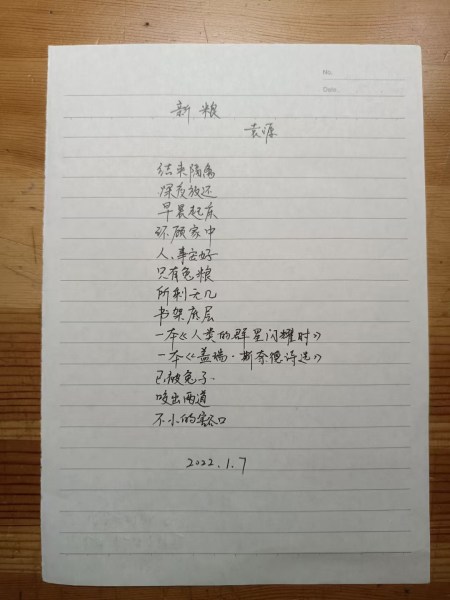 No.
Date
新粮
袁源
结束隔离
深夜放还
早晨起床
环顾家中
人、事安好
只有兔粮
所剩无几
书架底层
一本《人类的群星闪耀时》
一本《盖瑞·斯奈德诗选》
已被兔子
咬出两道
不小的豁口
2022.1.7